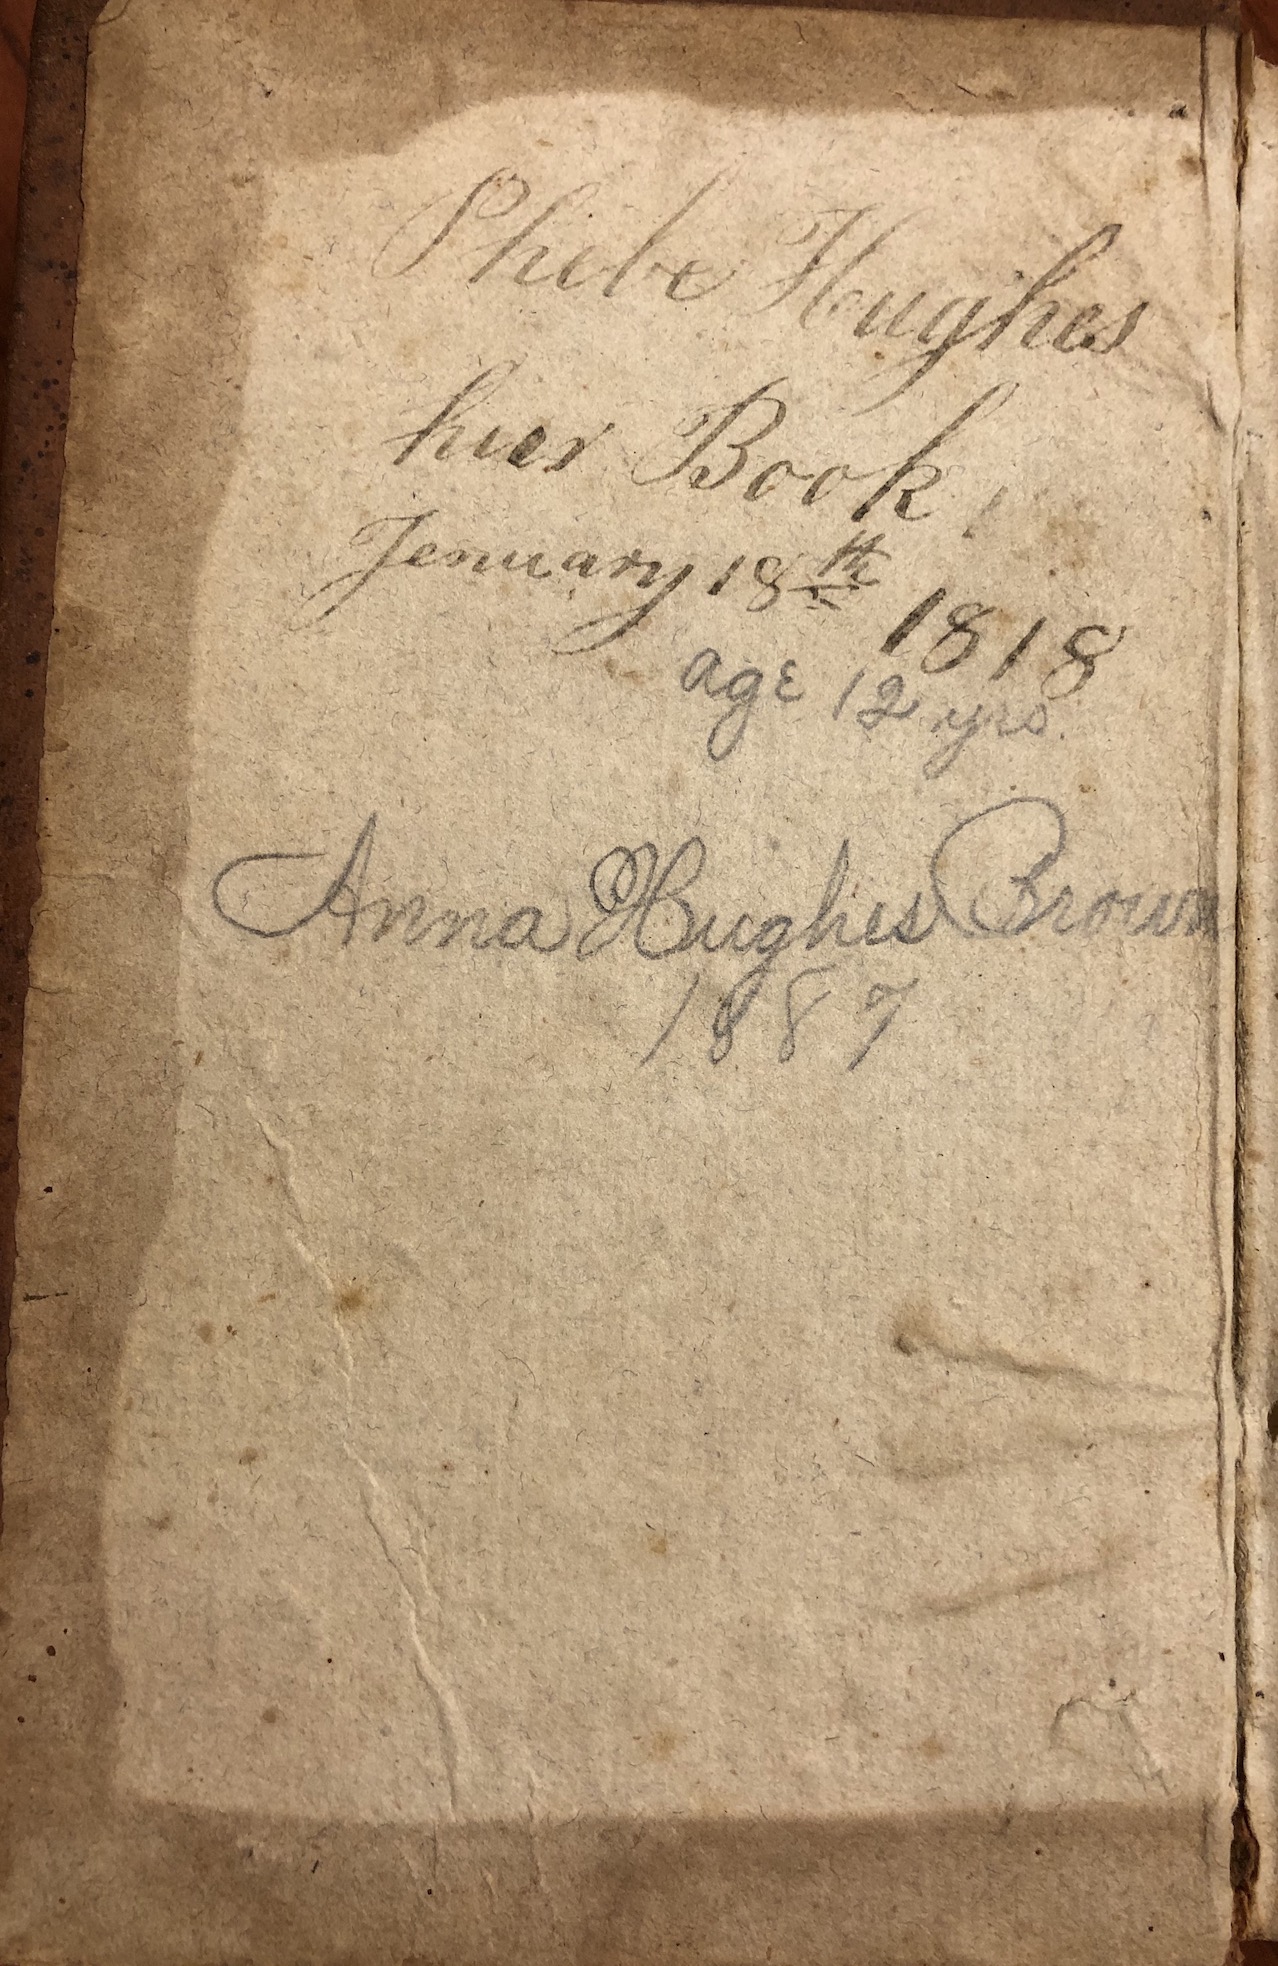 Phebe Hughes
hier Book!
Jenuary 18th 1818
age 12 yrs.
Anna Hughes Brown
1887